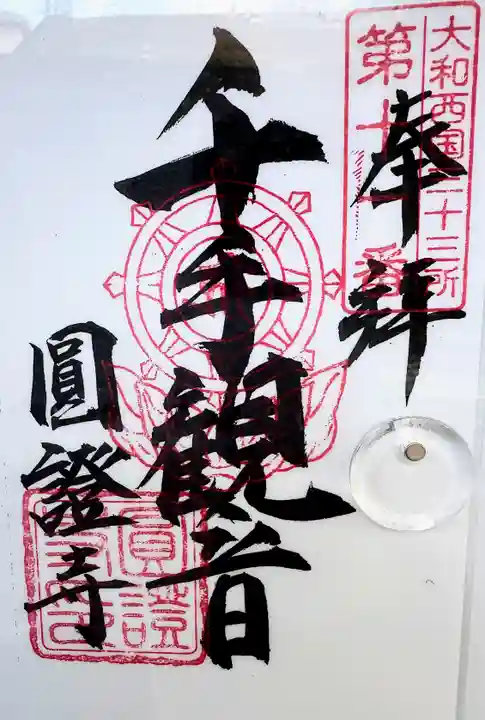 大和西国三十三所
第十一番
奉拝
千手観音
圓證寺
圓證